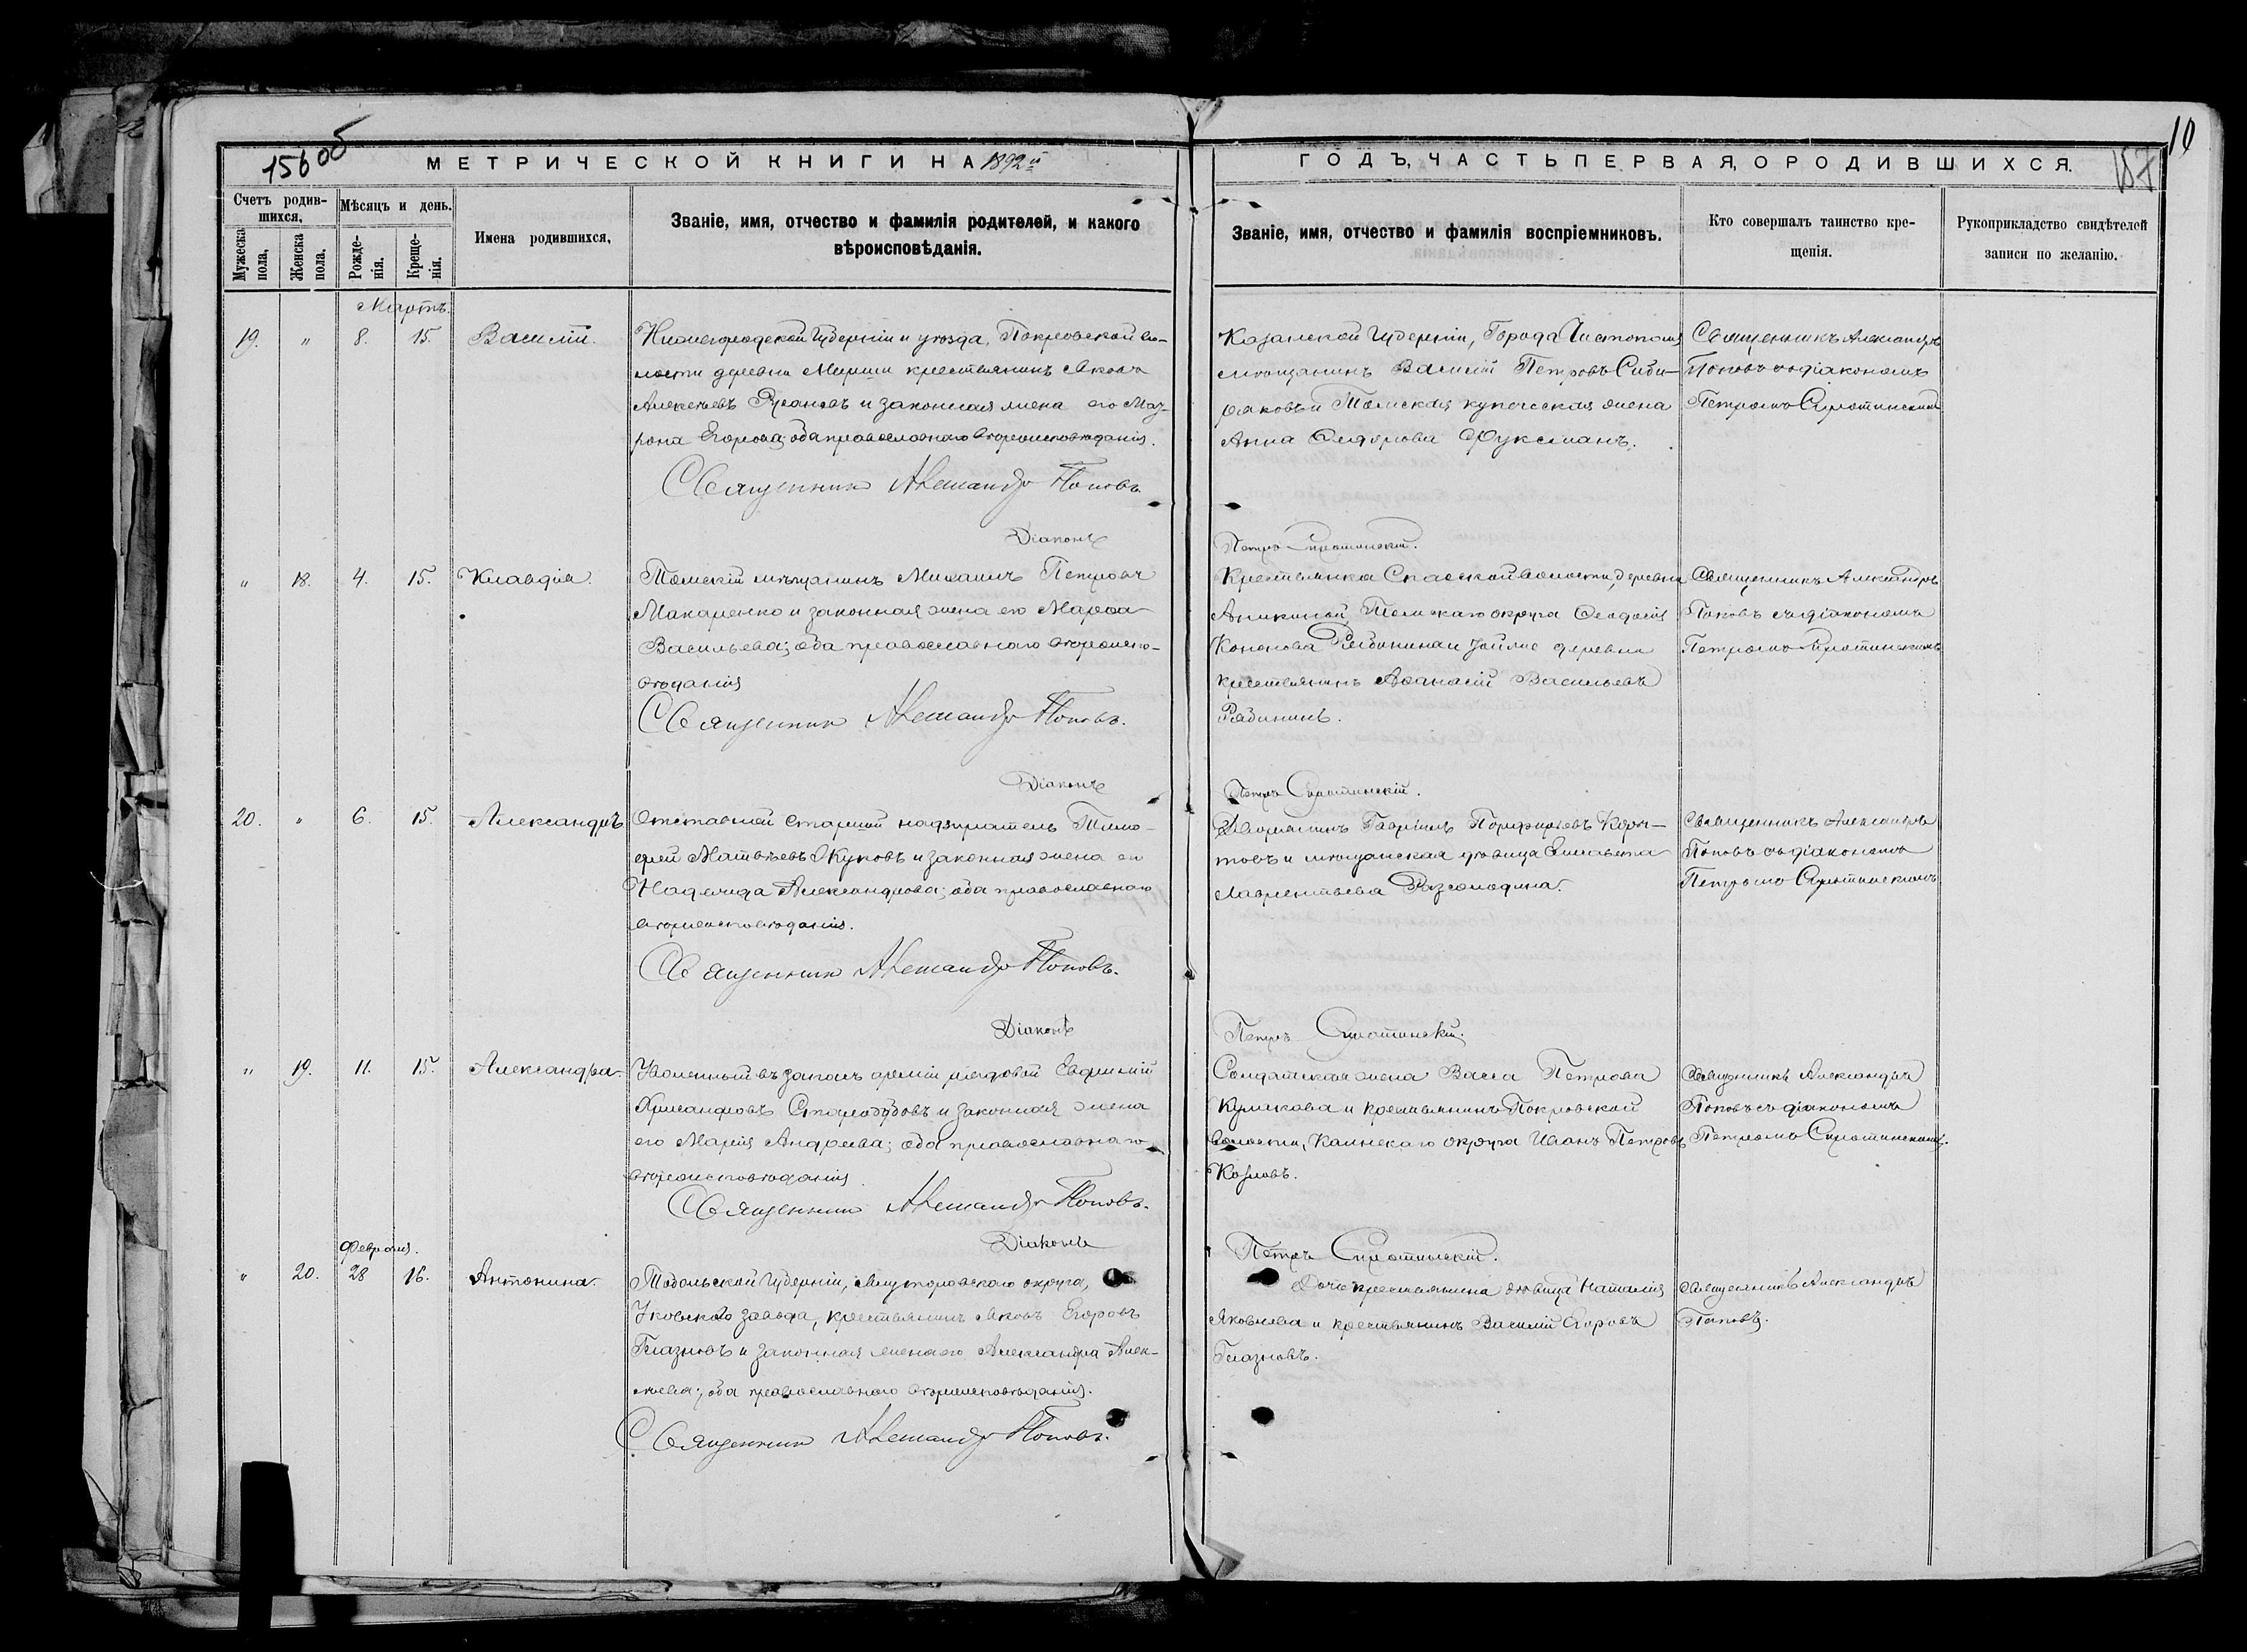 156 об
МЕТРИЧЕСКОЙ КНИГИ НА 1892й
ГОДЪ, ЧАСТЬ ПЕРВАЯ, О РОДИВШИХСЯ.
10
157
Счетъ родив-
шихся,
Мужеска
пола,
Женска
пола.
Мѣсяцъ и день.
Рожде-
нія.
Креще-
нія.
Имена родившихся,
Званіе, имя, отчество и фамилія родителей, и какого
вѣроисповѣданія.
Званіе, имя, отчество и фамилія воспріемниковъ.
Кто совершалъ таинство кре-
щенія.
Рукоприкладство свидѣтелей
записи по желанію.
Мартъ.
19. " 8. 15. Василій.
Нижегородской Губерніи и уѣзда, Покровской во-
лости деревни крестьянинъ Яковъ
Алексѣевъ и законная жена его Мат-
рона Егорова; оба православнаго вѣроисповѣданія.
Священникъ Александръ Поповъ.
Діаконъ
Казанской Губерніи, Города Чистополя
мѣщанинъ Василій Петровъ Сиби-
ряковъ и Томская купеческая жена
Анна Федорова Фуксманъ.
Петръ Сиротинскій.
Священникъ Александръ
Поповъ съ діакономъ
Петромъ Сиротинскимъ
" 18. 4. 15. Клавдія.
Томскій мѣщанинъ Михаилъ Петровъ
Макаренко и законная жена его Марѳа
Васильева; оба православнаго вѣроиспо-
вѣданія
Священникъ Александръ Поповъ.
Діаконъ
Крестьянка Спасской волости, деревни
Аникиной, Томскаго округа Ѳеодосія
Кононова Рябинина и той же деревни
крестьянинъ Аѳанасій Васильевъ
Рябининъ.
Петръ Сиротинскій.
Священникъ Александръ
Поповъ съ діакономъ
Петромъ Сиротинскимъ
20. " 6. 15. Александръ
Отставной старшій надзиратель Тимо-
фей Матвѣевъ Жуковъ и законная жена его
Надежда Александрова; оба православнаго
вѣроисповѣданія.
Священникъ Александръ Поповъ.
Діаконъ
Дворянинъ Гавріилъ Порфирьевъ
и мѣщанская дѣвица Елисавета
Лаврентьева
Петръ Сиротинскій.
Священникъ Александръ
Поповъ съ діакономъ
Петромъ Сиротинскимъ
" 19. 11. 15. Александра
Уволенный въ запасъ арміи рядовой Евдокимъ
Хрисанфовъ Стародубовъ и законная жена
его Марія Андреева; оба православнаго
вѣроисповѣданія.
Священникъ Александръ Поповъ.
Діаконъ
Солдатская жена Васса Петрова
Куликова и крестьянинъ Покровской
волости, Каинскаго округа Иванъ Петровъ
Козловъ.
Петръ Сиротинскій.
Священникъ Александръ
Поповъ съ діакономъ
Петромъ Сиротинскимъ.
Февраля.
" 20. 28 16. Антонина.
Тобольской Губерніи, Ялуторовскаго округа,
Уковскаго завода, крестьянинъ Яковъ Егоровъ
Глазковъ и законная жена его Александра Алек-
сѣева; оба православнаго вѣроисповѣданія.
Священникъ Александръ Поповъ.
Дочь крестьянина дѣвица Наталія
Яковлева и крестьянинъ Василій Егоровъ
Глазковъ.
Священникъ Александръ
Поповъ.